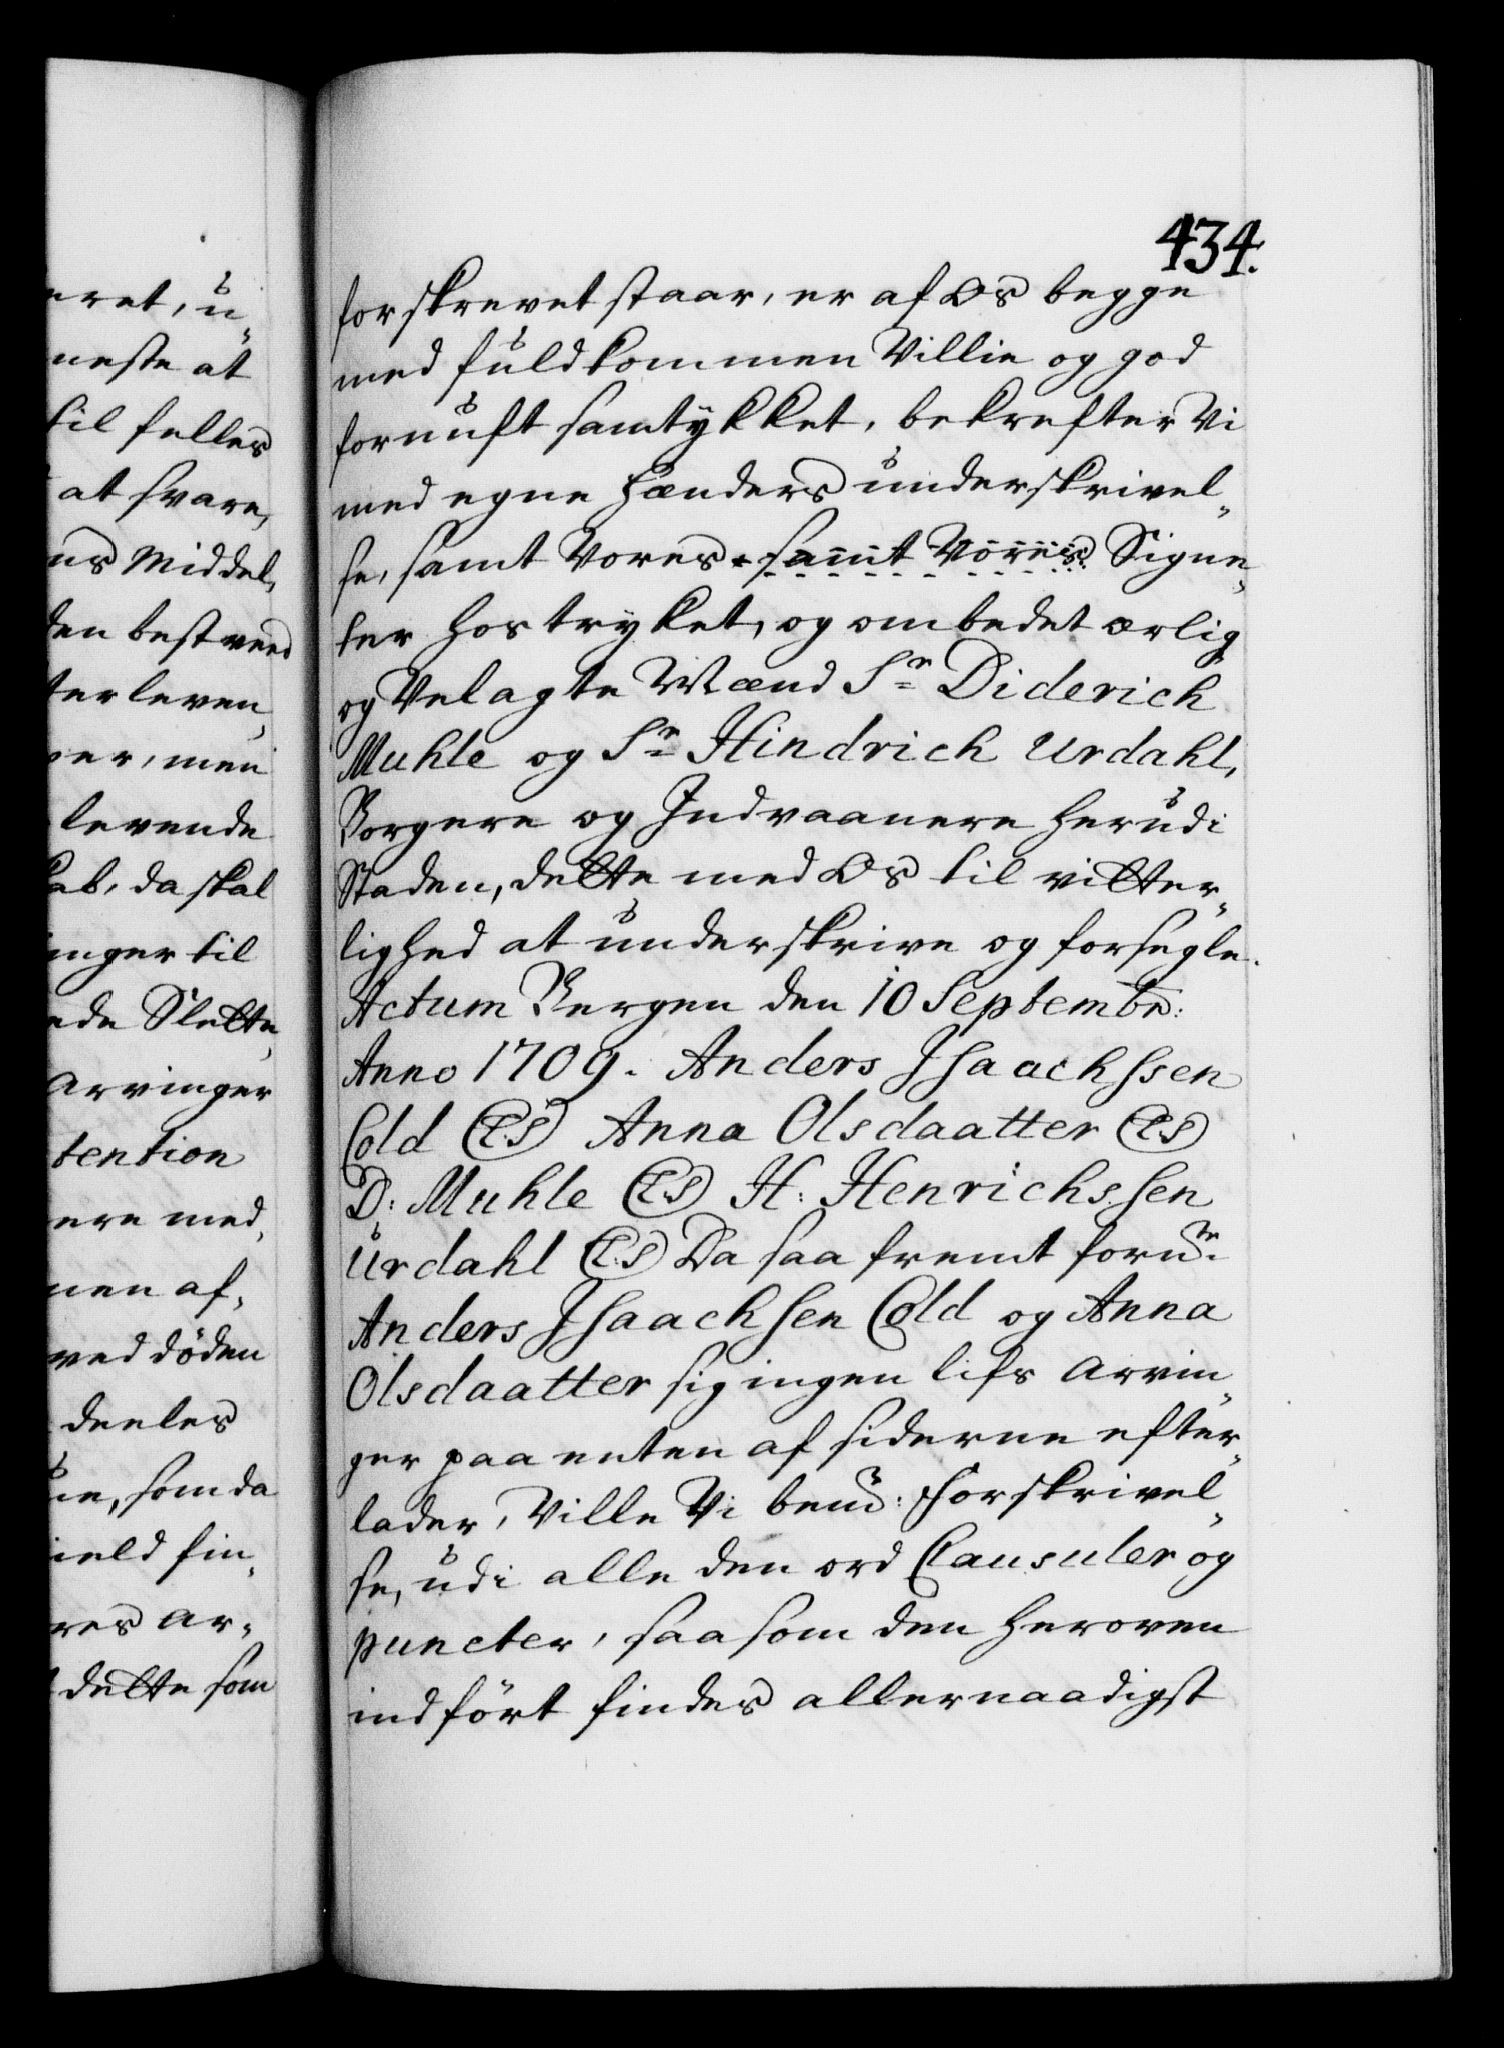 434.
eret, u„
neste at
til felles
at svare,
ns Middel„
den best veed
terleven„
ver, men
levende
kab, da skal
inger til
ede Slette„
Arvinger
tention
ere med„
nen af„
ved döden
deeles
ne, som da
ield fin„
res Ar„
dette som
forskrevet staar, er af Os begge
med fuldkommen Villie og god
fornuft samtykket, bekrefter Vi
med egne Hænders underskrivel„
se, samt Vores samt Vores Signe„
ter hos trykket, og ombedet ærlig
og Velagte Mænd Sr Diderich
Muhle og Sr Hindrich Urdahl,
Borgere og Indvaanere herudi
Staden, dette med Os til vitter„
lighed at underskrive og forsegle.
Actum Bergen den 10 Septembr:
Anno 1709. Anders Isaachssen
Cold (L.S) Anna Olsdaatter (L.S)
D: Muhle (L.S) H: Henrichssen
Urdahl (L.S) Da saa fremt forn.te
Anders Isaachsen Cold og Anna
Olsdaatter sig ingen lifs Arvin„
ger paa enten af siderne efter„
lader, Ville Vi bem.te: Forskrivel„
se, udi alle den ord Clausuler og
puncter, saasom den heroven
indfört findes allernaadigst